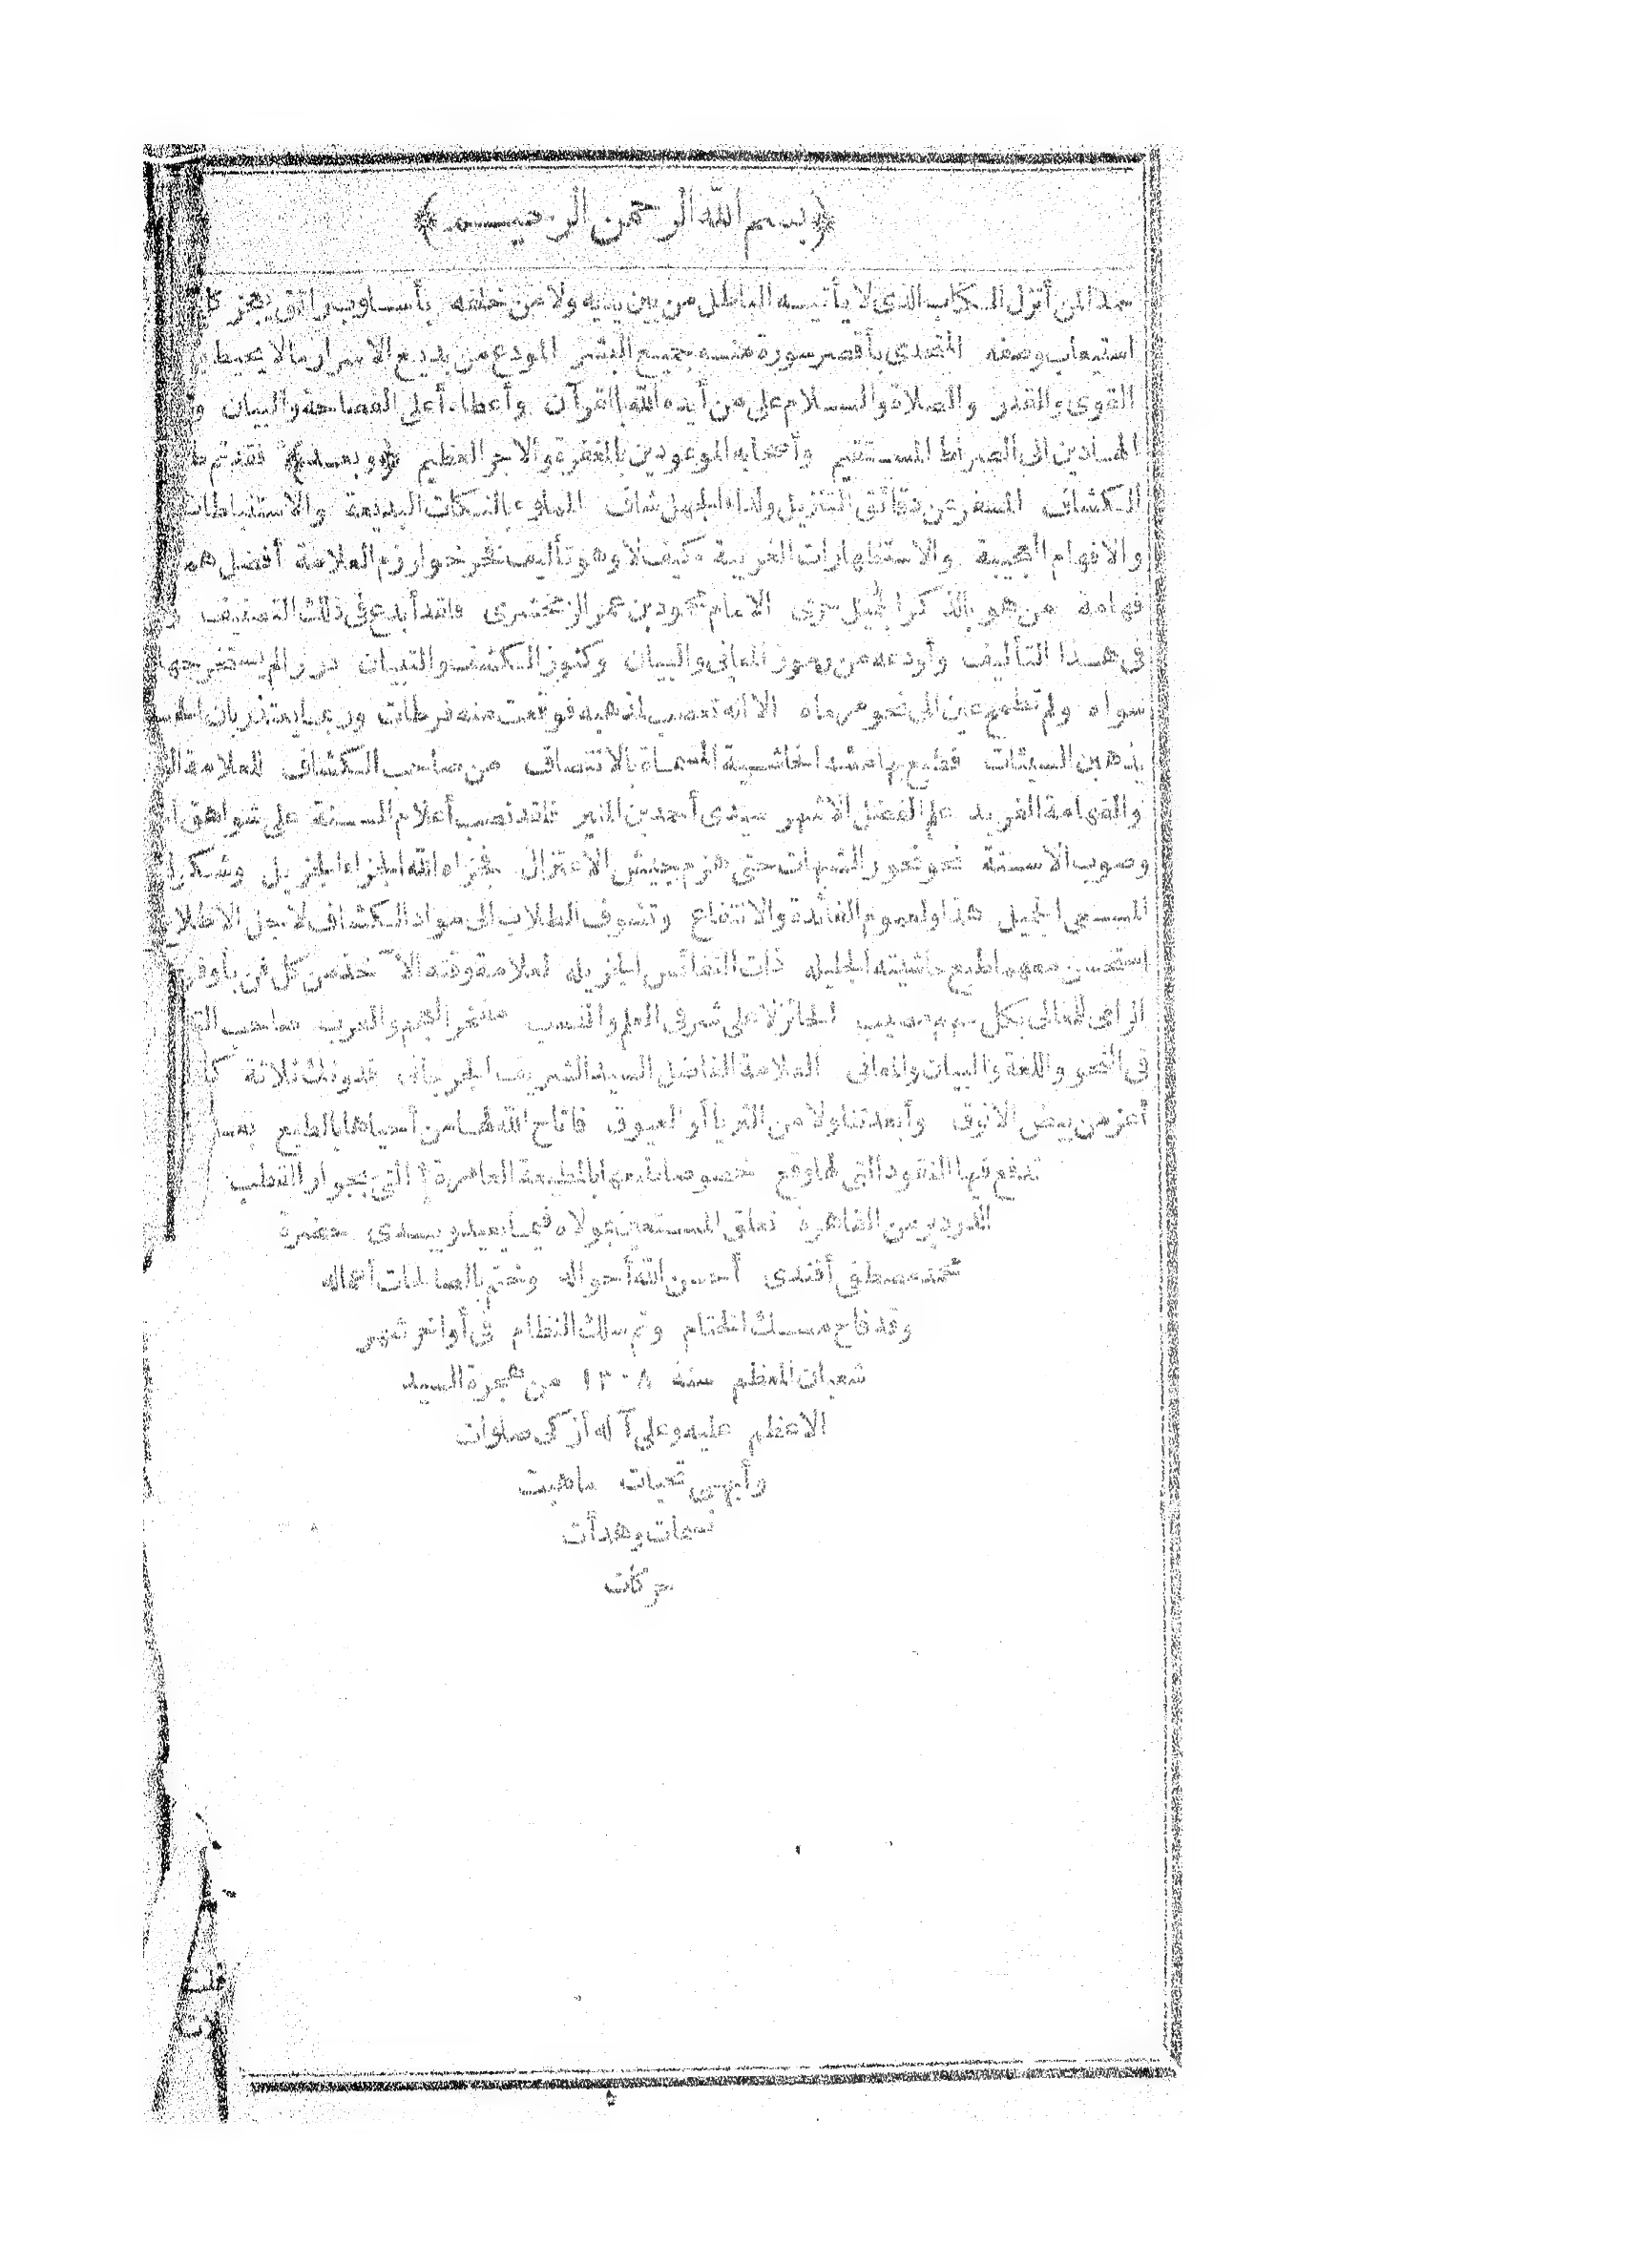 ﴿بسم الله الرحمن الرحيم﴾
حمدا لمن أنزل الكتاب الذى لا يأتيه الباطل من بين يديه ولا من خلفه بأسلوب رائق يعجز كل
استيعاب وصفه المتحدى بأقصر سورة منه جميع البشر المودع من بديع الاسرار مالا يحيط
القوى والقدر والصلاة والسلام على من أيده الله بالقرآن وأعطاه أعلى الفصاحة والبيان و
الهادين الى الصراط المستقيم وأصحابه الموعودين بالمغفرة والاجر العظيم ﴿وبعد﴾ فقد تم
الكشاف المسفر عن دقائق التنزيل ولداء الجهل شاف المملوء بالنكات البديعة والاستنباطات
والافهام العجيبة والاستظهارات الغريبة كيف لا وهو تأليف فخر خوارزم العلامة أفضل
فهامة من هو بالذكر الجميل حرى الامام محمود بن عمر الزمخشرى فلقد أبدع فى ذلك التصنيف
فى هذا التأليف وأودعه من رموز المعانى والبيان وكنوز الكشف والتبيان درر الم يستخرجها
سواه ولم تطمح عين الى نحو مرماه الا انه تعصب لمذهبه فوقعت منه فرطات وربما يعتذر بان
يذهبن السيئات فطبع بهامشه الحاشية المسماة بالانتصاف من صاحب الكشاف للعلامة
والفهامة الفريد علم الفضل الاشهر سيدى أحمد بن المنير فلقد نصب أعلام السنة على شواهق
وصوب الاسنة نحو نحور الشبهات حتى هزم جيش الاعتزال فجزاه الله الجزاء الجزيل وشكر
المسعى الجميل هذا ولعموم الفائدة والانتفاع وتشوف الطلاب الى مواد الكشاف لاجل الاطلاع
استحسن معهما طبع حاشيته الجليله ذات النفائس الجزيله لعلامة وقته الآخذ من كل فن بأوفر
الرامى للمعالى بكل سهم مصيب الحائز لاعلى شرفى العلم والنسب مفخر العجم والعرب صاحب
فى النحو واللغة والبيان والمعانى العلامة الفاضل السيد الشريف الجرجانى فدونك ثلاثة
أعز من بيض الانوق وأبعد تناولا من الثريا أو العيوق فاتاح الله لها من أحياها بالطبع
تدفع فيها النقود التى لها وقع خصوصا طبعها بالمطبعة العامرة التى بجوار القطب
الدردير من القاهرة تعلق المستعين بمولاه فيما يعيد ويبدى حضرة
محمد مصطفى أفندى أحسن الله أحواله وختم بالصالحات أعماله
وقد فاح مسك الختام وتم سلك النظام فى أواخر شهر
شعبان المعظم سنة ١٣٠٨ من هجرة السيد
الاعظم عليه وعلى آله أزكى صلوات
وأبهى تحيات ماهبت
نسمات وهدأت
حركات